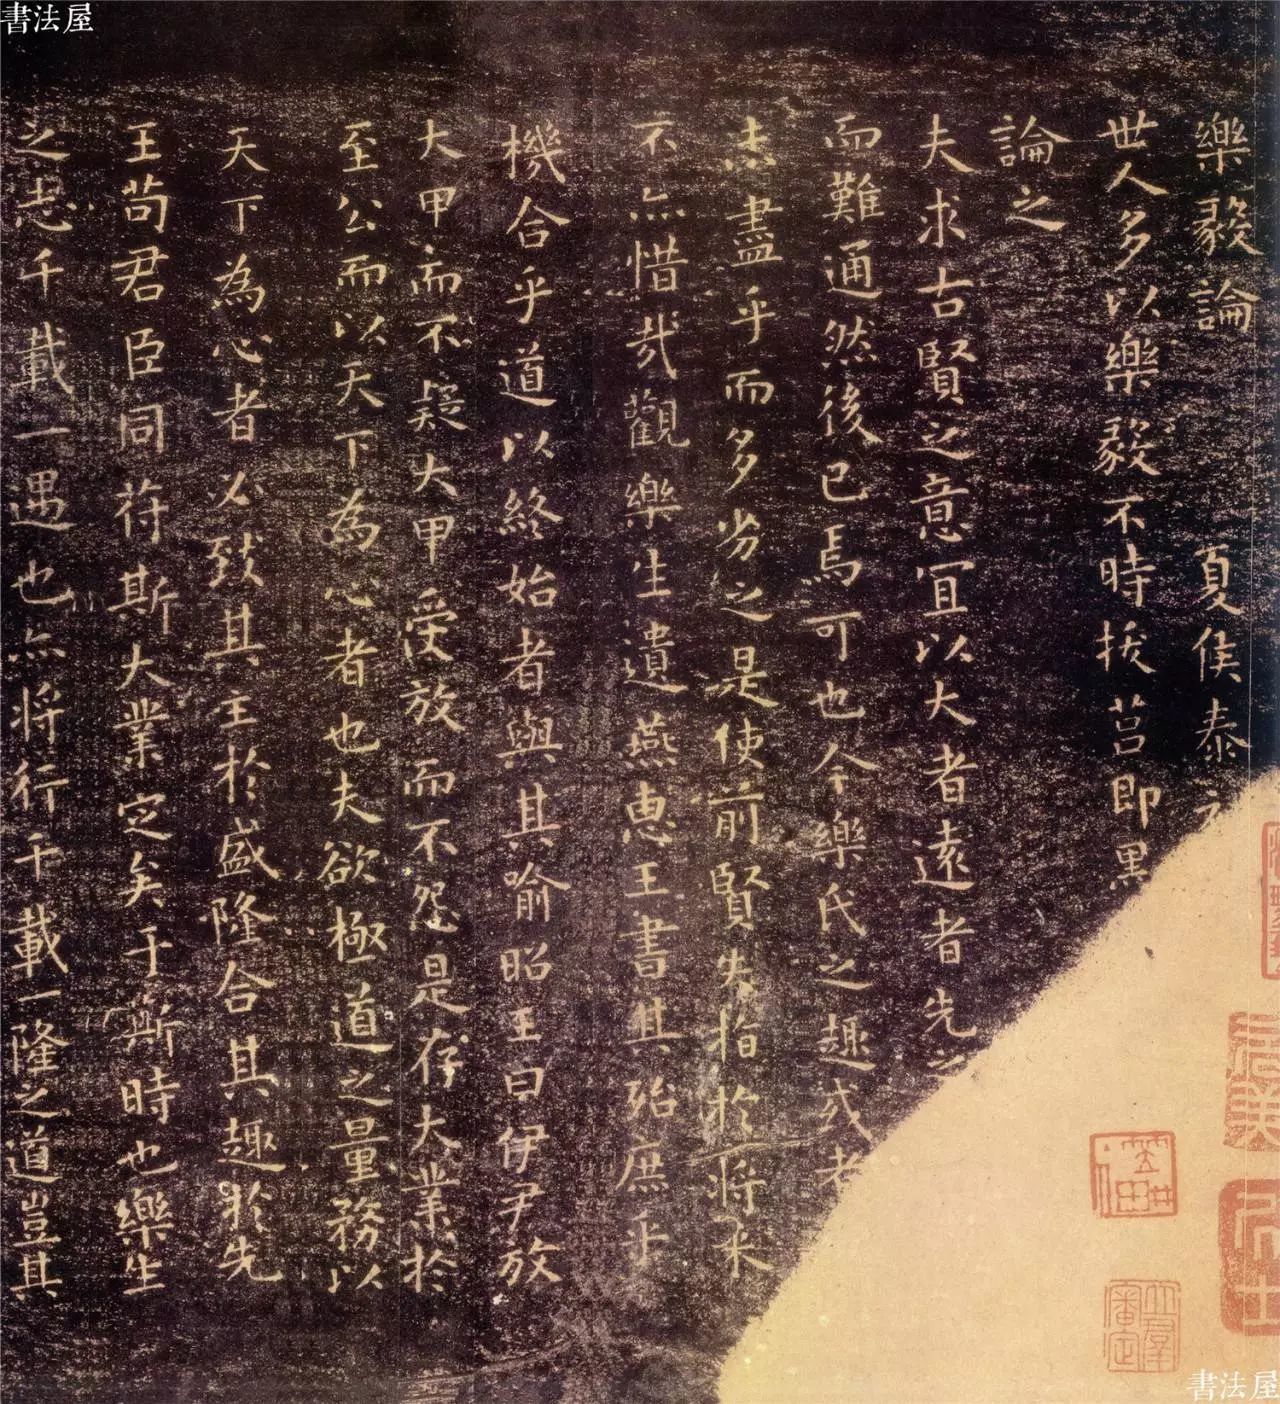 書法屋
樂毅論 夏侯泰
世人多以樂毅不時拔莒即黑
論之
夫求古賢之意宜以大者遠者先之
而難通然後已焉可也今樂氏之趣或者
未盡乎而多劣之是使前賢失指於將來
不亦惜哉觀樂生遺燕惠王書其殆庶乎
機合乎道以終始者與其喻昭王曰伊尹放
大甲而不疑大甲受放而不怨是存大業於
至公而以天下為心者也夫欲極道之量務以
天下為心者必致其主於盛隆合其趣於先
王苟君臣同符斯大業定矣于斯時也樂生
之志千載一遇也亦將行千載一隆之道豈其
書法屋